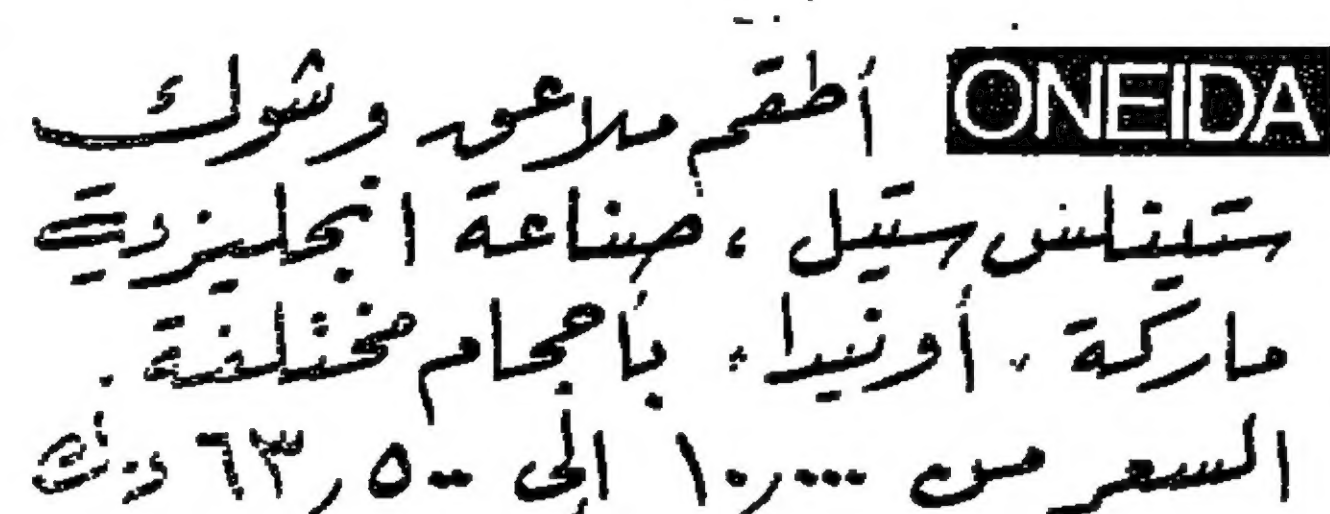 ONEIDA أطقم ملاعق وشوك
ستينلس ستيل ، صناعة انجليزية
ماركة " أونيدا " بأحجام مختلفة .
السعر من ١٠,٠٠٠ إلى ٦٣,٥٠٠ د.ك